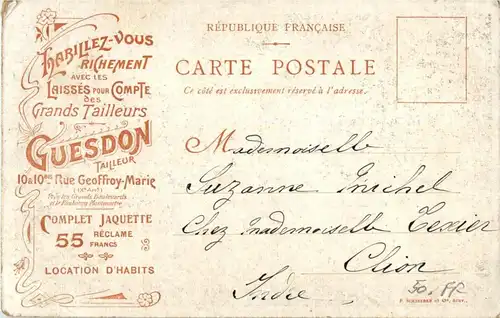 HABILLEZ-VOUS
RICHEMENT
AVEC LES
LAISSÉS POUR COMPTE
des
Grands Tailleurs
GUESDON
TAILLEUR
10 & 10 BIS Rue Geoffroy-Marie
Près des Grands Boulevards
et le Faubourg Montmartre
COMPLET JAQUETTE
55 RÉCLAME
FRANCS
LOCATION D'HABITS
RÉPUBLIQUE FRANÇAISE
CARTE POSTALE
Ce côté est exclusivement réservé à l'adresse.
Mademoiselle
Suzanne Michel
Chez Mademoiselle Texier
Clion
Indre
50